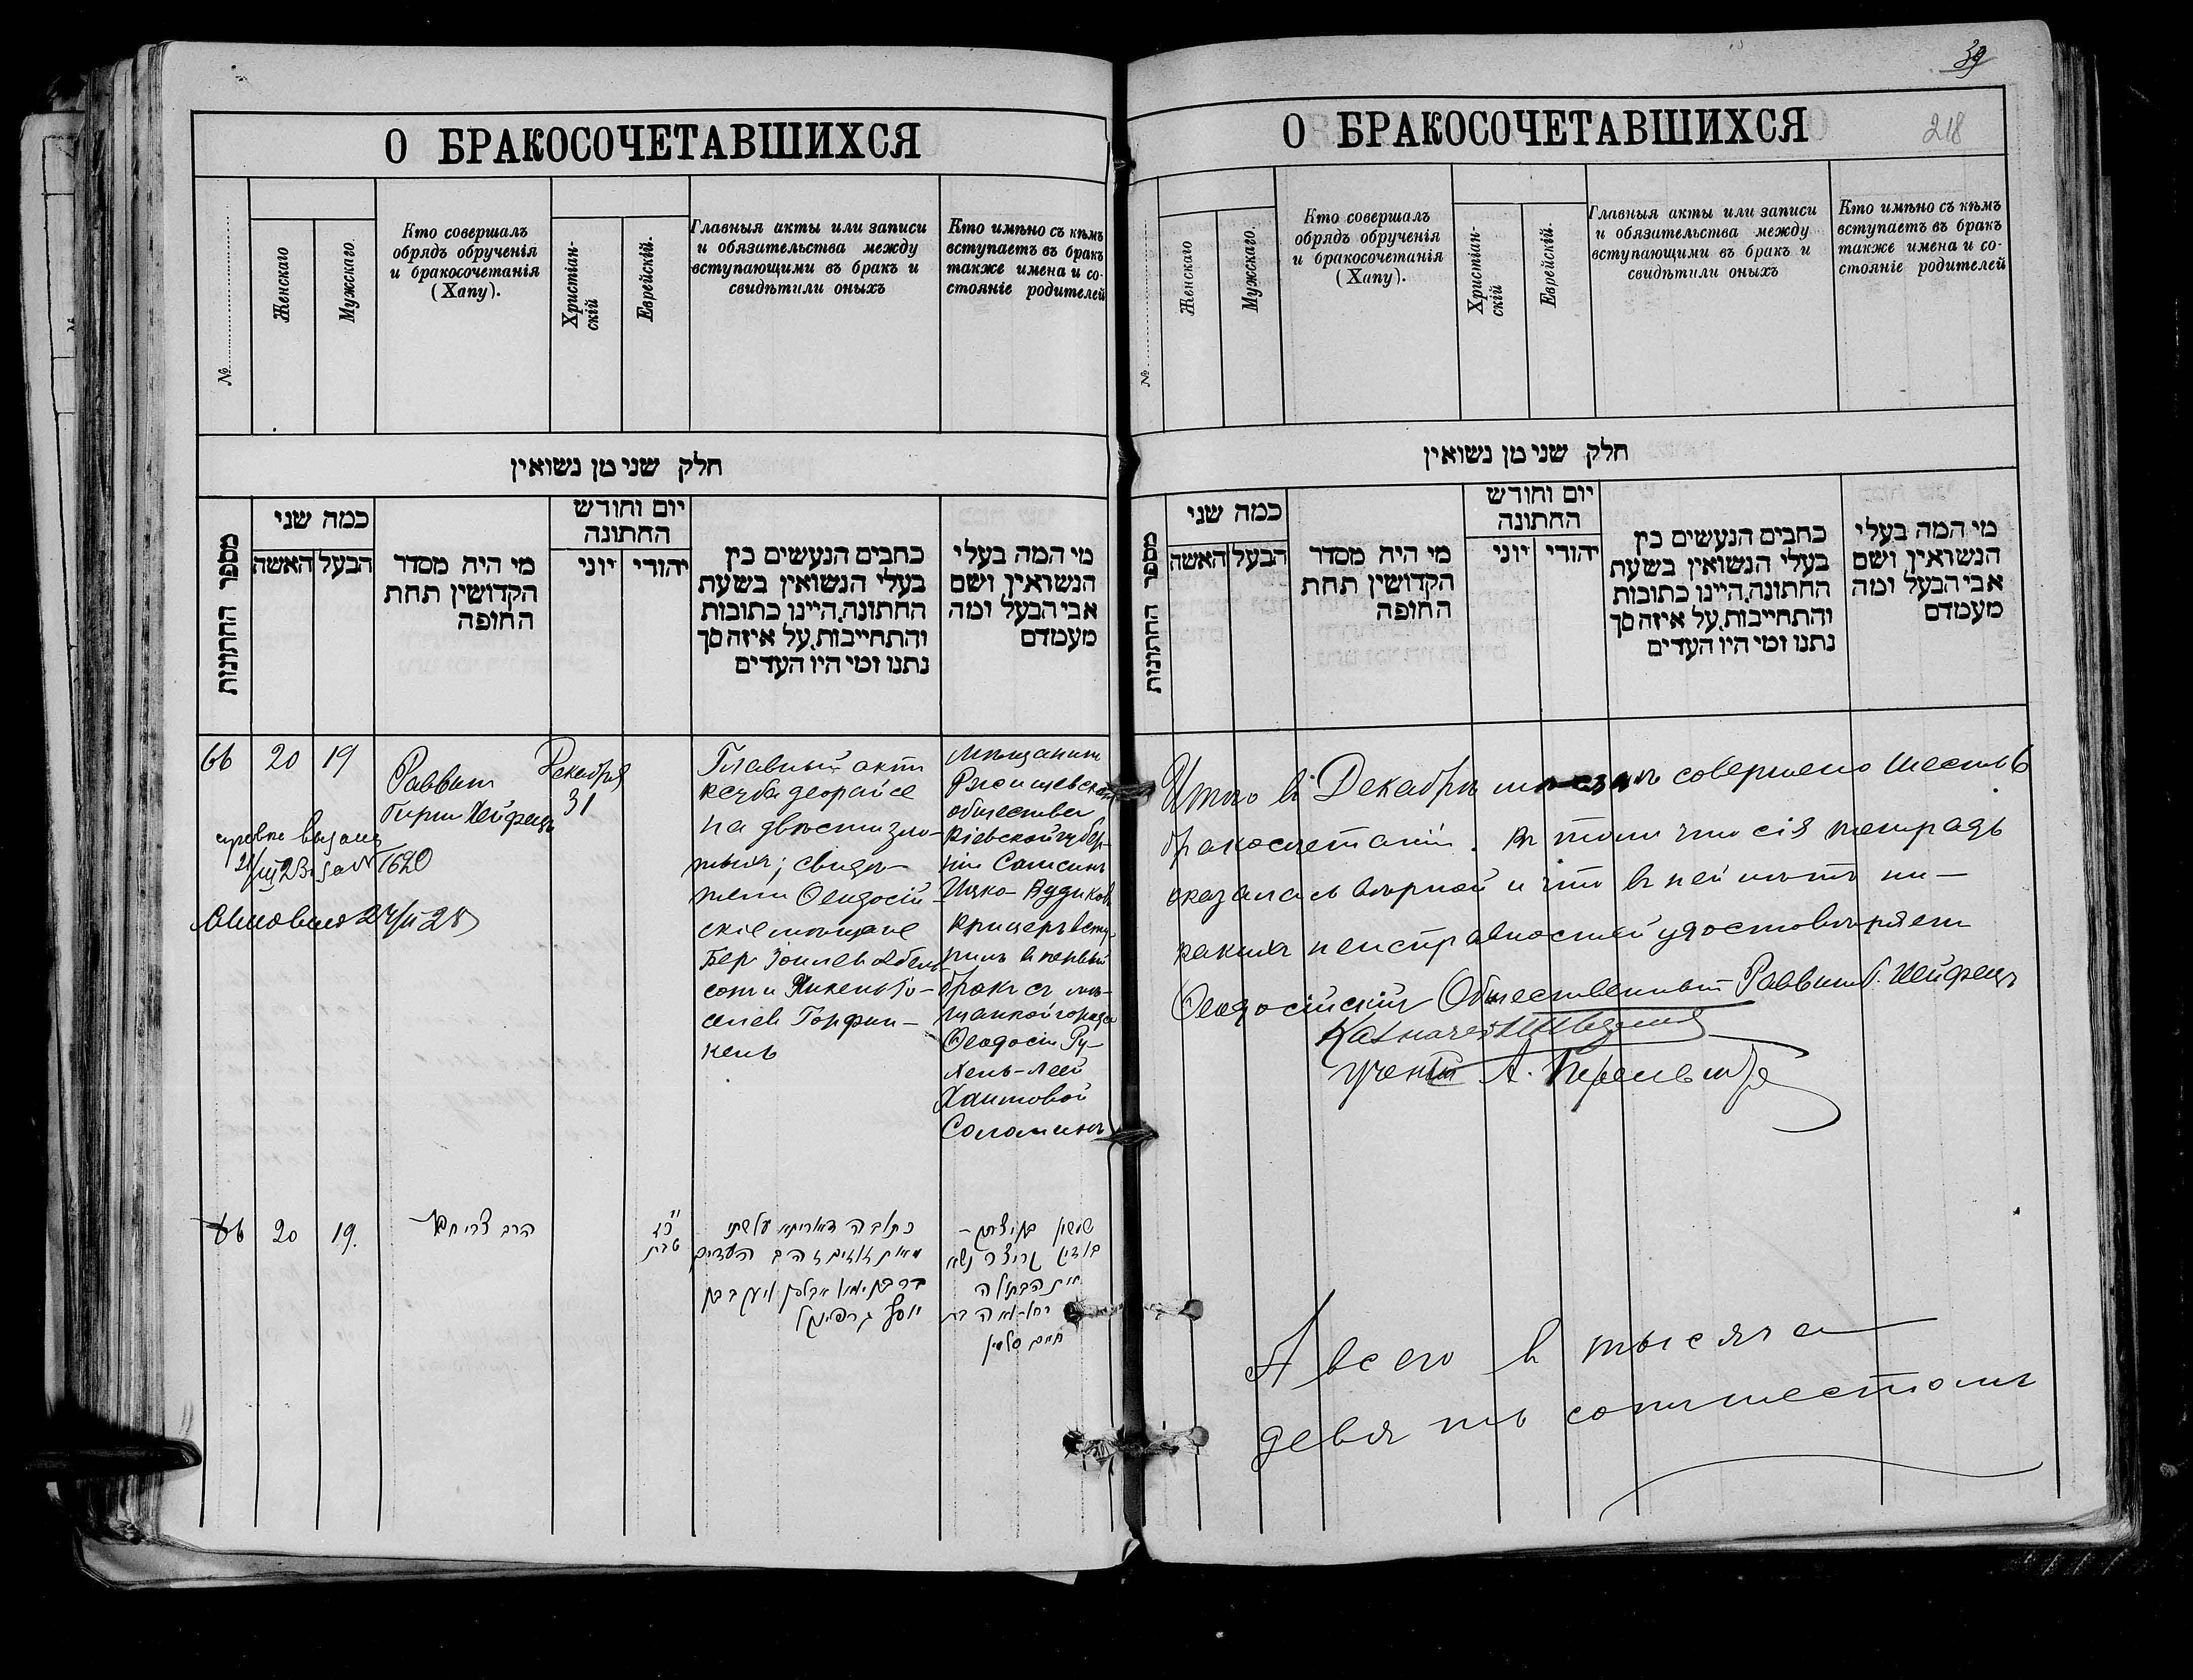 О БРАКОСОЧЕТАВШИХСЯ
№
Женскаго
Мужскаго.
Кто совершалъ
обрядъ обрученія
и бракосочетанія
(Хапу).
Христіан-
скій
Еврейскій.
Главныя акты или записи
и обязательства между
вступающими въ бракъ и
свидѣтили оныхъ
Кто имѣно съ кѣмъ
вступаетъ въ бракъ
также имена и со-
стояніе родителей
חלק שני מן נשואין
מספר החתונות
כמה שני
האשה
הבעל
מי היה מסדר
הקדושין תחת
החופה
יום וחודש
החתונה
יוני
יהודי
כתבים הנעשים בין
בעלי הנשואין בשעת
החתונה, היינו כתובות
והתחייבות, על איזה סך
נתנו ומי היו העדים
מי המה בעלי
הנשואין, ושם
אבי הבעל, ומה
מעמדם
66
20
19
Раввин
Гирш Хейфецъ
Декабря
31
Главный актъ
на двѣсти зло-
тыхъ; свидѣ-
тели Ѳеодосій-
скіе мѣщане
Бер
и
кель
Мѣщанинъ
Ржищевскаго
общества
Кіевской губер-
ніи Самсонъ
Ицко-Вудиковъ
Крицеръ всту-
пилъ в первый
бракъ съ мѣ-
щанкой города
Ѳеодосіи Ру-
хель-Леей
Хаимовой
Соломинъ
66
20
19.
הרב
כ"ד
טבת
כתובה דאוריתא על שתי
מאות זוזים זהב העדים
יוסף גרפינקל
שמשון בן יצחק-
קריצר נשא
את הבתולה
רחל-לאה בת
חיים
39
218
О БРАКОСОЧЕТАВШИХСЯ
№
Женскаго
Мужскаго.
Кто совершалъ
обрядъ обрученія
и бракосочетанія
(Хапу).
Христіан-
скій
Еврейскій.
Главныя акты или записи
и обязательства между
вступающими въ бракъ и
свидѣтили оныхъ
Кто имѣно съ кѣмъ
вступаетъ въ бракъ
также имена и со-
стояніе родителей
חלק שני מן נשואין
מספר החתונות
כמה שני
האשה
הבעל
מי היה מסדר
הקדושין תחת
החופה
יום וחודש
החתונה
יוני
יהודי
כתבים הנעשים בין
בעלי הנשואין בשעת
החתונה, היינו כתובות
והתחייבות, על איזה סך
נתנו ומי היו העדים
מי המה בעלי
הנשואין, ושם
אבי הבעל, ומה
מעמדם
Итого въ Декабрѣ совершено шесть 6
бракосочетаній. въ томъ что сія тетрадь
оказалась вѣрной и что въ ней нѣтъ ни-
какихъ неисправностей удостовѣряетъ
Ѳеодосійскій Общественный Раввинъ Г. Хейфецъ
Казначей
Ученый А.
А всего в тысяча
девятьсотъ шестомъ